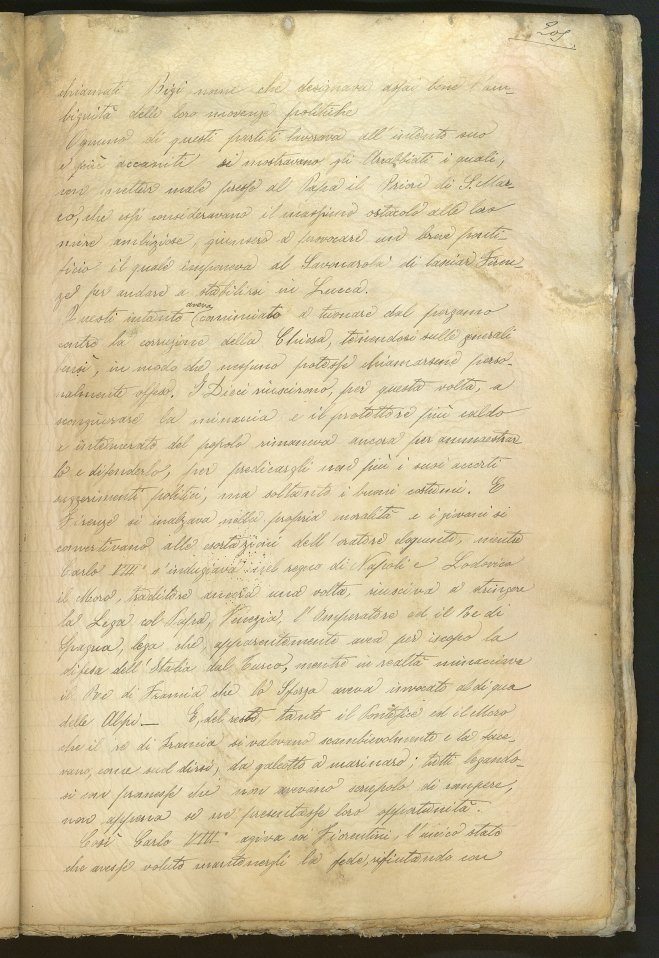 205
chiamati Bigi nome che designava assai bene l'am-
biguità delle loro movenze politiche
Ognuno di questi partiti lavorava all'intento suo
e più accaniti si mostravano gli Arrabbiati i quali,
con metter male presso al Papa il Priore di S. Mar-
co, che essi consideravano il massimo ostacolo alle loro
mire ambiziose, giunsero a provocare un breve ponti-
ficio il quale imponeva al Savonarola di lasciar Firen-
ze per andare a stabilirsi in Lucca.
Questi intanto aveva cominciato a tuonare dal pergamo
contro la corruzione della Chiesa, tenendosi sulle generali
bensì, in modo che nessuno potesse chiamarsene perso-
nalmente offeso. I Dieci riuscirono, per questa volta, a
scongiurare la minaccia e il protettore più caldo
e intemerato del popolo rimaneva ancora per ammaestrar-
lo e difenderlo, per predicargli non più i suoi accorti
suggerimenti politici, ma soltanto i buoni costumi. E
Firenze si inalzava nella propria moralità e i giovani si
convertivano alle esortazioni dell'oratore eloquente, mentre
Carlo VIII s'indugiava nel regno di Napoli e Lodovico
il Moro, traditore ancora una volta, riusciva a stringere
la Lega col Papa, Venezia, l'Imperatore ed il Re di
Spagna, lega che apparentemente avea per iscopo la
difesa dell'Italia dal Turco, mentre in realtà minacciava
il Re di Francia che lo Sforza aveva invocato al di qua
delle Alpi — E, del resto tanto il Pontefice ed il Moro
che il re di Francia si valevano scambievolmente e la face-
vano, come suol dirsi, da galeotto a marinaro; tutti legando-
si con promesse che non avevano scrupolo di rompere,
non appena se ne presentasse loro opportunità.
Così Carlo VIII agiva coi Fiorentini, l'unico stato
che avesse voluto mantenergli la fede, rifiutando con